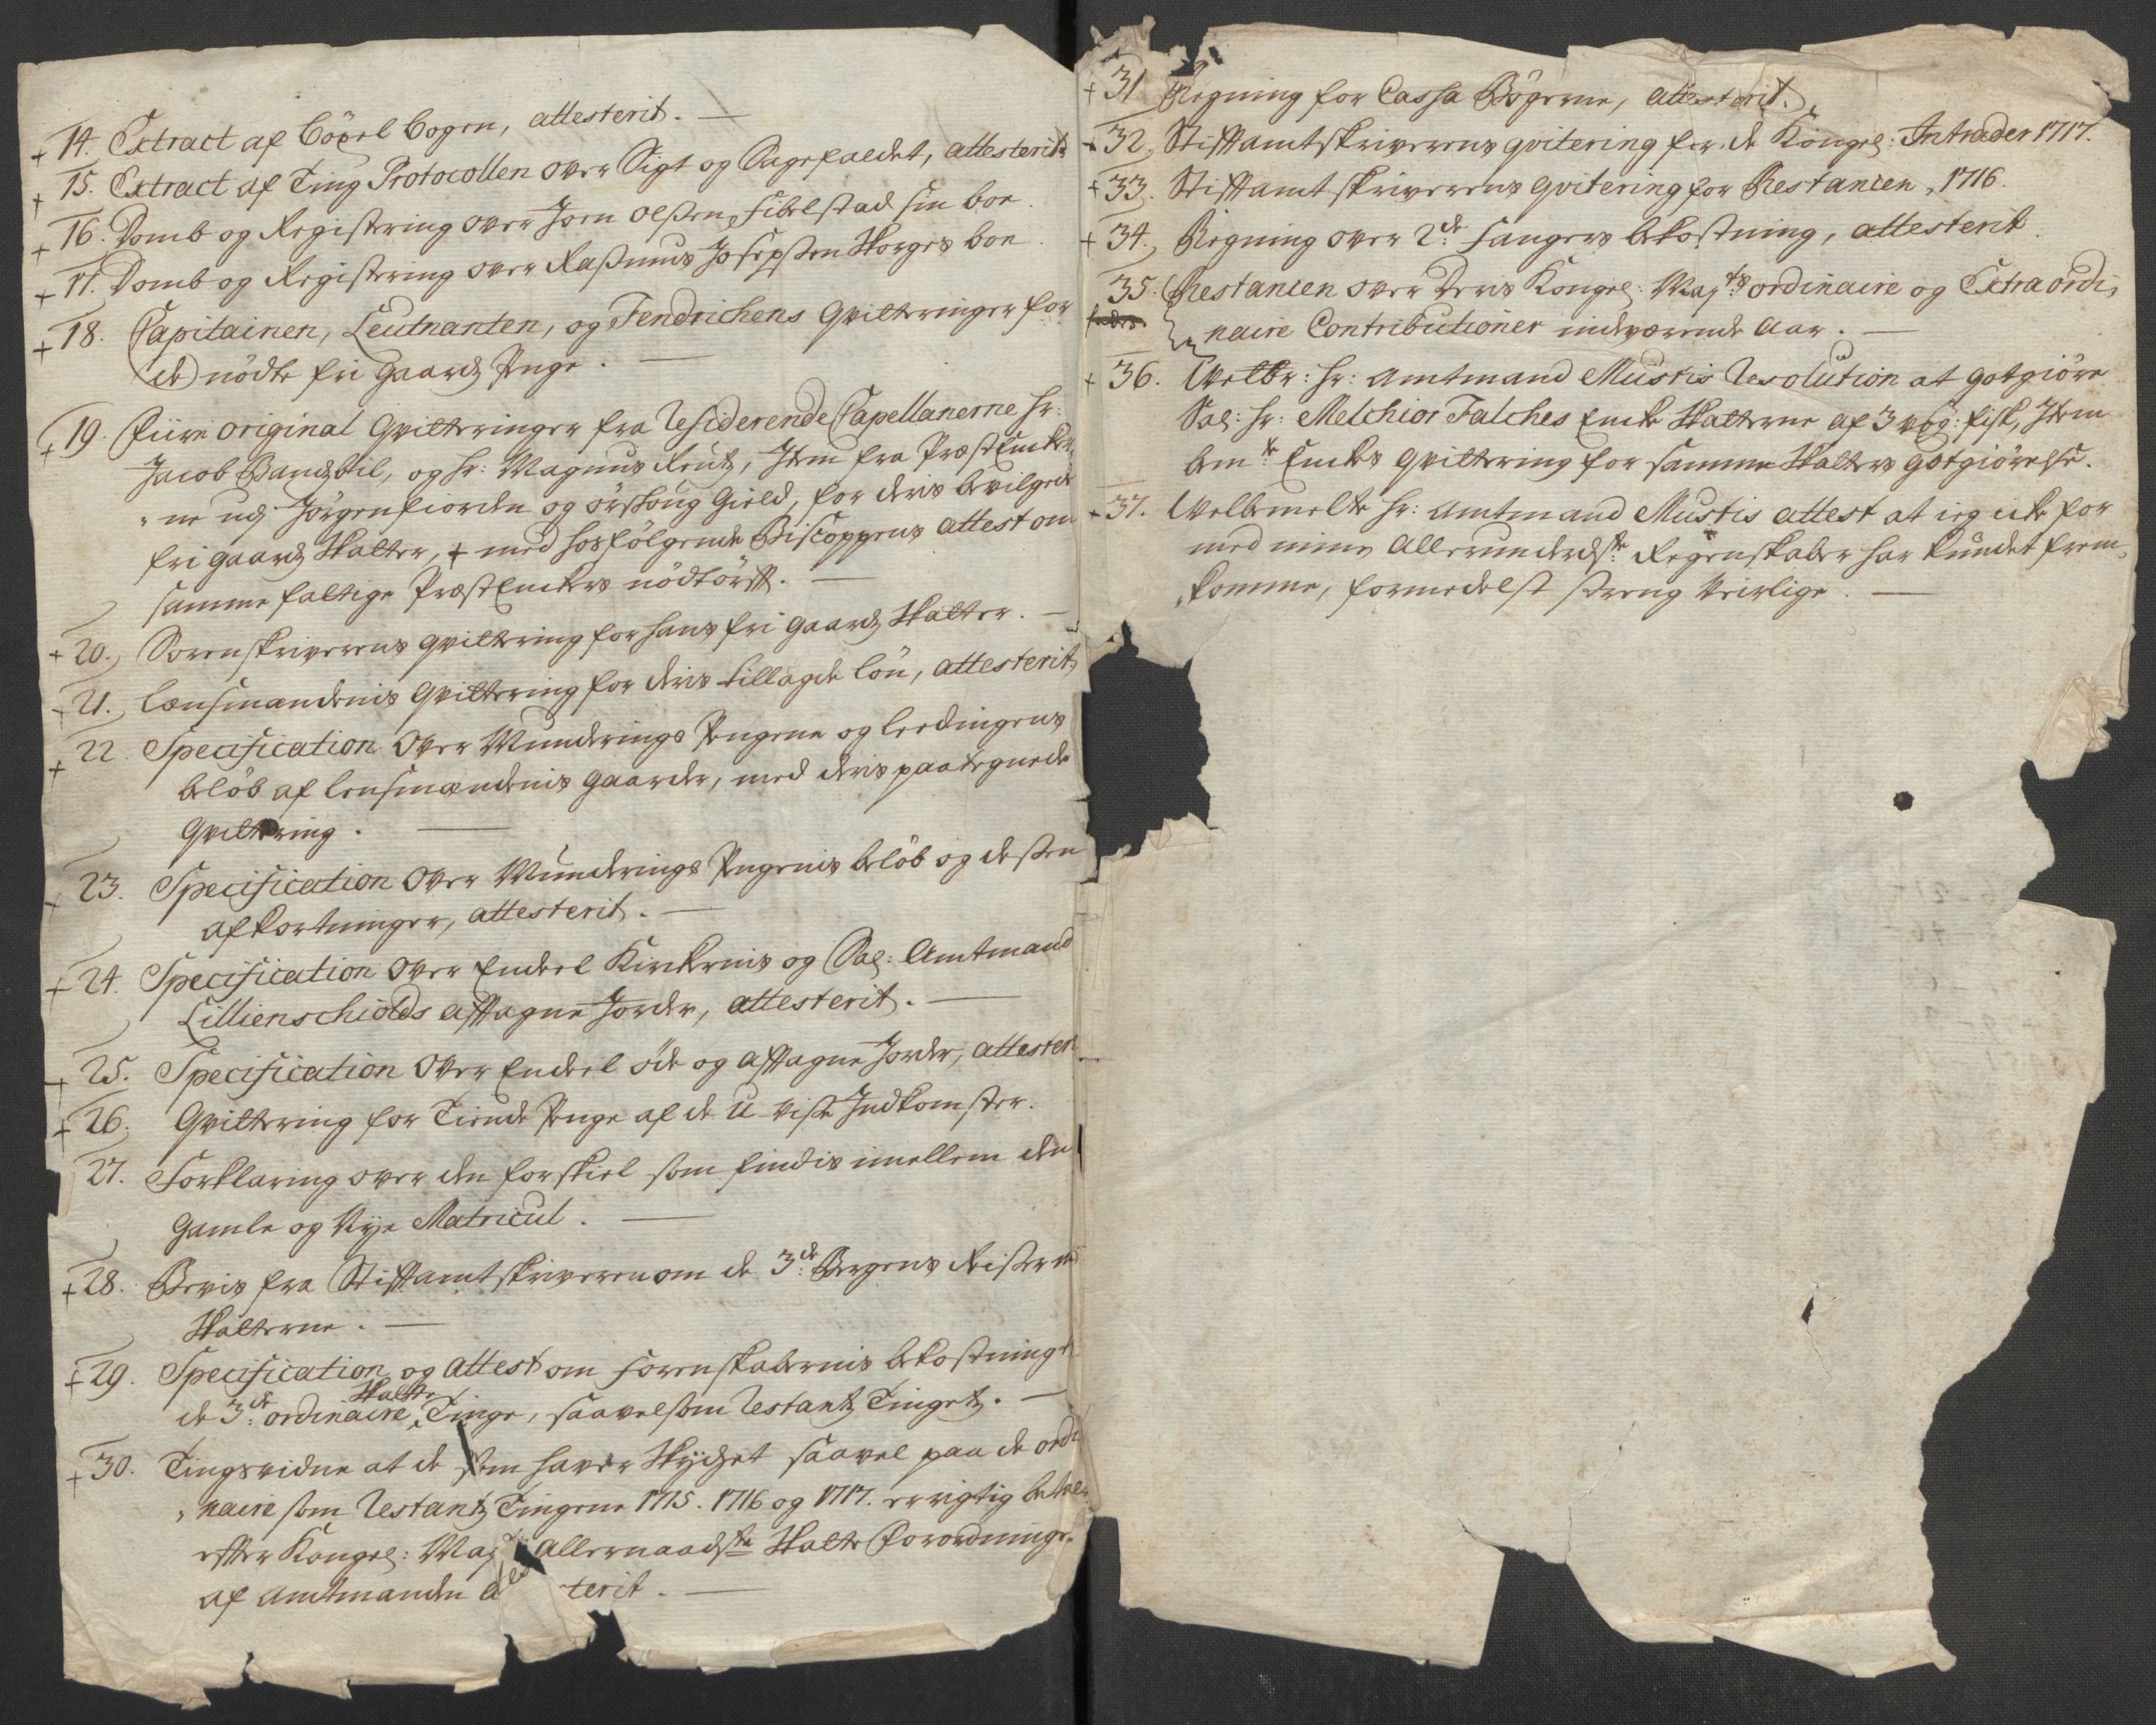 + 14. Extract af Böxel bogen, attesterit. —
+ 15. Extract af Ting Protocollen over Sigt og Sagefaldet, attesterit.
+ 16. Domb og Registring over Joen Olßen Fibelstad sin boe.
+ 17. Domb og Registering over Raßmus Josepßen Horges boe.
+ 18. Capitainen, Leutnanten, og Fendrichens Qvitteringer for
de nödte frj gaardz Penge. —
+ 19. Fiire original Qvitteringer fra Residerende Capellanerne Hr:
Jacob Randzvil, og Hr: Magnus Reutz, Item fra PræstEncker,
ne udj Jörgenfiorden og örskoug Gield, for deris bevilgede
fri gaardz Skatter, + med hosfölgende Biscoppens attest om
samme faltige PræstEnckers nödtörfft. —
+ 20. Sorenskriverens qvittering for hans fri gaardz Skatter. —
21. Lænsmændenis Qvittering for deris tillagde lön, attesterit,
+ 22. Specification over Munderings Pengene og leedingens
belöb af lensmændenis gaarder, med deris paategnede
Qvittering. —
23. Specification over Munderings Pengenis belöb og deßen
afkortninger, attesterit. —
+ 24. Specification over Endeel Kirkernis og Sal: Amtmand
Lillienschiolds afftagne Jorder, attesterit. —
25. Specification over Endeel öde og afftagne Jorder, attester
+ 26. Qvittering for Tiende Penge af de U-viße Indkomster.
27. Forklaring over den forskiel som findis imellem den
Gamle og Nye Matricul. —
+ 28. Bevis fra Stifftamtskriveren om de 3de Bergens Reißer med
Skatterne. —
+ 29. Specification og attest om forenskabernis bekostning
Skatte
de 3de ordinaire Tinge, saavelsom Restantz Tinget. —
+ 30. Tingsvidne at de som haver Skydzet saavel paa de ordi
naire som Restantz Tingene 1715. 1716 og 1717. er rigtig betal
efter Kongel: Maj Allernaadste Skatte Forordninge.
af Amtmanden a terit. —
+ 31 Regning for Cassa Bögerne, attesterit.
+ 32. Stifftamtskriverens qvitering for de Kongel: Intrader 1717.
+ 33. Stifftamtskriverens qvitering for Restancen, 1716.
+ 34. Regning over 2de fangers bekostning, attesterit.
35. Restancen over Deris Kongel: Mayts ordinaire og Extra ordi,
naire Contributioner indeværende Aar. —
+ 36. Welbr: Hr: Amtmand Mustis Resolution at gotgiöre
Sal: Hr: Melchior Falches Encke Skatterne af 3 vog: fisk, Item
bemte Enckes qvittering for samme Skatters gotgiörelse.
+ 37. Welbemelte Hr: Amtmand Mustis attest at ieg icke for
med mine Allerunderdste Regenskaber har kundet frem,
komme, formedelst streng Veirlige. —